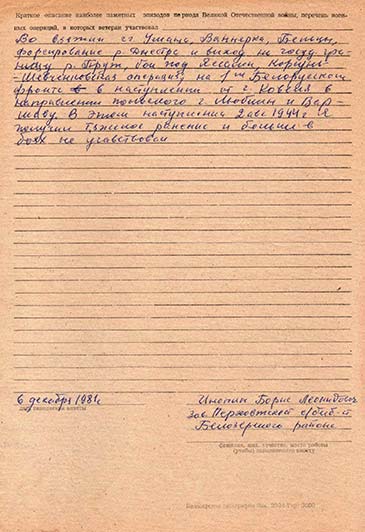 Краткое описание наиболее памятных эпизодов периода Великой Отечественной войны, перечень воен-
ных операций, в которых ветеран участвовал
Во взятии ст Умань, Вапнярка, Бельцы,
форсирование р Днестр и выход на госуд гра-
ницу р. Прут, бои под Яссами, Корсунь-
Шевченковская операция, на 1ом Белорусском
фронте в наступлении от г. Ковеля в
направлении польского г. Люблин и Вар-
шаву. В этом наступлении 2 авг 1944г я
получил тяжелое ранение и больше в
боях не участвовал
6 декабря 1981г
дата заполнения анкеты
Борис Леонидович
зав
Белозерского района
Фамилия, имя, отчество, место работы
(учебы) заполнившего анкету
Белозерская типография Зак. 2034 Тир. 3000